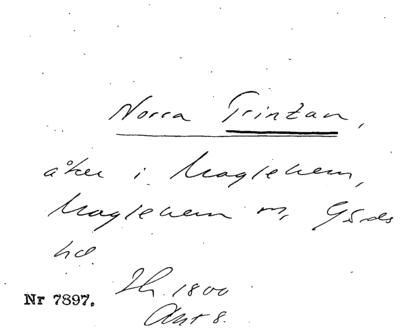 Norra Trinzan,
åker i Maglehem,
Maglehem sn, Gärds
hd.
Sk. 1800
Akt 8.
Nr 7897.